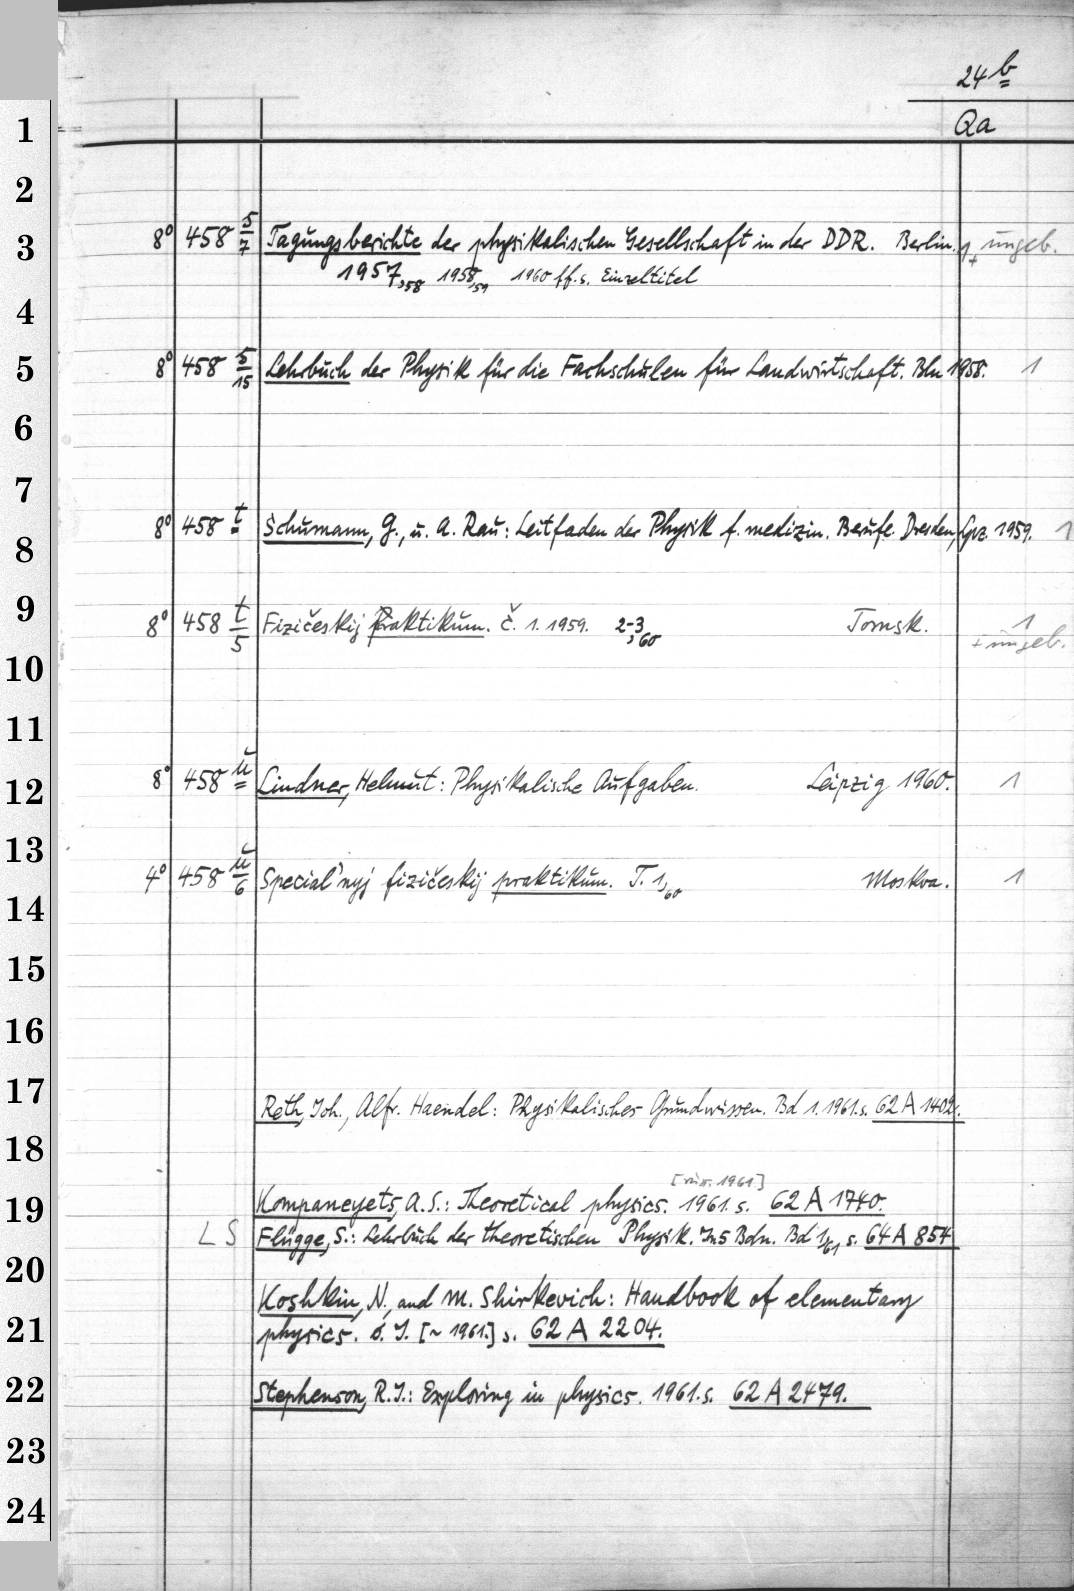 24 b
Qa
1
2
3 8° 458 5/7 Tagungsberichte der physikalischen Gesellschaft in der DDR. Berlin. 1 + ungeb.
1957,58 1958,59 1960 ff. s. Einzeltitel
4
5 8° 458 5/15 Lehrbuch der Physik für die Fachschulen für Landwirtschaft. Bln 1958. 1
6
7
8 8° 458 t Schumann, G., u. A. Rau: Leitfaden der Physik f. medizin. Berufe. Dresden, Lpz. 1959. 1
9 8° 458 t/5 Fizičeskij Praktikum. Č. 1. 1959. 2-3,60 Tomsk. 1
+ ungeb.
10
11
12 8° 458 u Lindner, Helmut: Physikalische Aufgaben. Leipzig 1960. 1
13
4° 458 u/6 Special'nyj fizičeskij praktikum. T. 1,60 Moskva. 1
14
15
16
17 Reth, Joh., Alfr. Haendel: Physikalisches Grundwissen. Bd 1. 1961. s. 62 A 1402.
18
[1961]
19 Kompaneyets, A.S.: Theoretical physics. 1961. s. 62 A 1740.
L S Flügge, S.: Lehrbuch der theoretischen Physik. In 5 Bdn. Bd 1,61 s. 64 A 854
20
Koshkin, N., and M. Shirkevich: Handbook of elementary
21 physics. o. J. [~ 1961.] s. 62 A 2204.
22 Stephenson, R.J.: Exploring in physics. 1961. s. 62 A 2479.
23
24